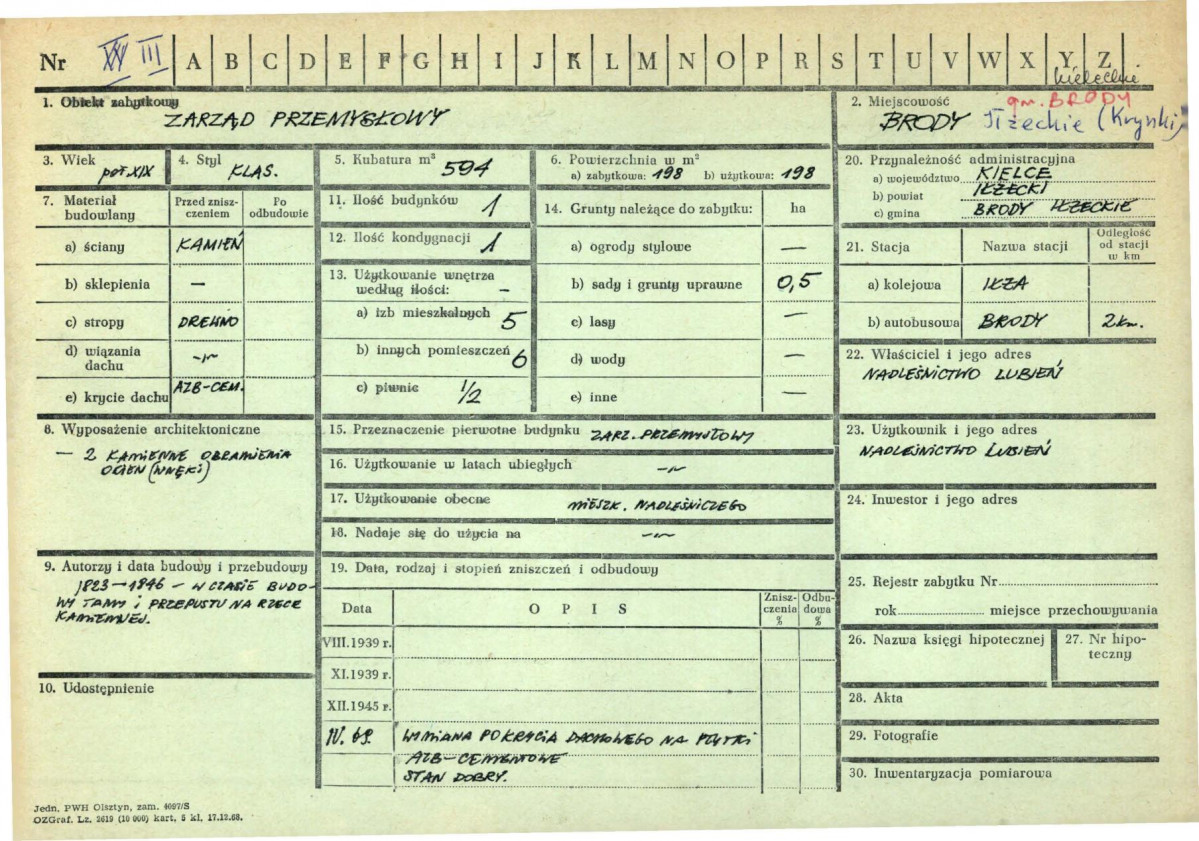 Nr XX III A B C D E F G H I J K L M N O P R S T U V W X Y Z
kieleckie
1. Obiekt zabytkowy
ZARZĄD PRZEMYSŁOWY
2. Miejscowość
gm. BRODY
BRODY Iłżeckie (Krynki)
3. Wiek
poł. XIX
4. Styl
KLAS.
5. Kubatura m³
594
6. Powierzchnia w m²
a) zabytkowa: 198 b) użytkowa: 198
20. Przynależność administracyjna
a) województwo KIELCE
b) powiat IŁŻECKI
c) gmina BRODY IŁŻECKIE
7. Materiał budowlany
Przed zniszczeniem
Po odbudowie
a) ściany KAMIEŃ
b) sklepienia —
c) stropy DREWNO
d) wiązania dachu -„-
e) krycie dachu AZB-CEM.
11. Ilość budynków 1
12. Ilość kondygnacji 1
13. Użytkowanie wnętrza
według ilości: —
a) izb mieszkalnych 5
b) innych pomieszczeń 6
c) piwnic 1/2
14. Grunty należące do zabytku: ha
a) ogrody stylowe —
b) sady i grunty uprawne 0,5
c) lasy —
d) wody —
e) inne —
21. Stacja Nazwa stacji Odległość od stacji w km
a) kolejowa IŁŻA
b) autobusowa BRODY 2 km.
22. Właściciel i jego adres
NADLEŚNICTWO LUBIEŃ
8. Wyposażenie architektoniczne
— 2 KAMIENNE OBRAMIENIA
OCIEN (WNĘKI)
15. Przeznaczenie pierwotne budynku ZARZ. PRZEMYSŁOWY
16. Użytkowanie w latach ubiegłych -„-
17. Użytkowanie obecne MIESZK. NADLEŚNICZEGO
18. Nadaje się do użycia na -„-
23. Użytkownik i jego adres
NADLEŚNICTWO LUBIEŃ
24. Inwestor i jego adres
9. Autorzy i data budowy i przebudowy
1823–1846 – W CZASIE BUDO-
WY TAMY I PRZEPUSTU NA RZECE
KAMIENNEJ.
10. Udostępnienie
19. Data, rodzaj i stopień zniszczeń i odbudowy
Data O P I S Zniszczenia % Odbudowa %
VIII.1939 r.
XI.1939 r.
XII.1945 r.
IV. 69. WYMIANA POKRYCIA DACHOWEGO NA PŁYTKI
AZB-CEMENTOWE
STAN DOBRY.
25. Rejestr zabytku Nr
rok miejsce przechowywania
26. Nazwa księgi hipotecznej
27. Nr hipoteczny
28. Akta
29. Fotografie
30. Inwentaryzacja pomiarowa
Jedn. PWH Olsztyn, zam. 4097/S
OZGraf. Lz. 2619 (10 000) kart, 5 kl. 17.12.68.